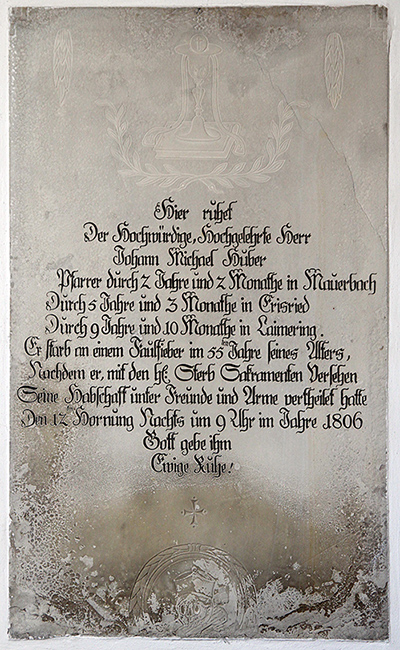 Hier ruhet
Der Hochwürdige, Hochgelehrte Herr
Johann Michael Huber
Pfarrer durch 2 Jahre und 2 Monathe in Mauerbach
Durch 5 Jahre und 3 Monathe in Erisried
Durch 9 Jahre und 10 Monathe in Laimering.
Er starb an einem Faulfieber im 55ten Jahre seines Alters,
Nachdem er, mit den hl. Sterb Sakramenten Versehen
Seine Habschaft unter Freunde und Arme vertheilet hatte
Den 12 Hornung Nachts um 9 Uhr im Jahre 1806
Gott gebe ihm
Ewige Ruhe!